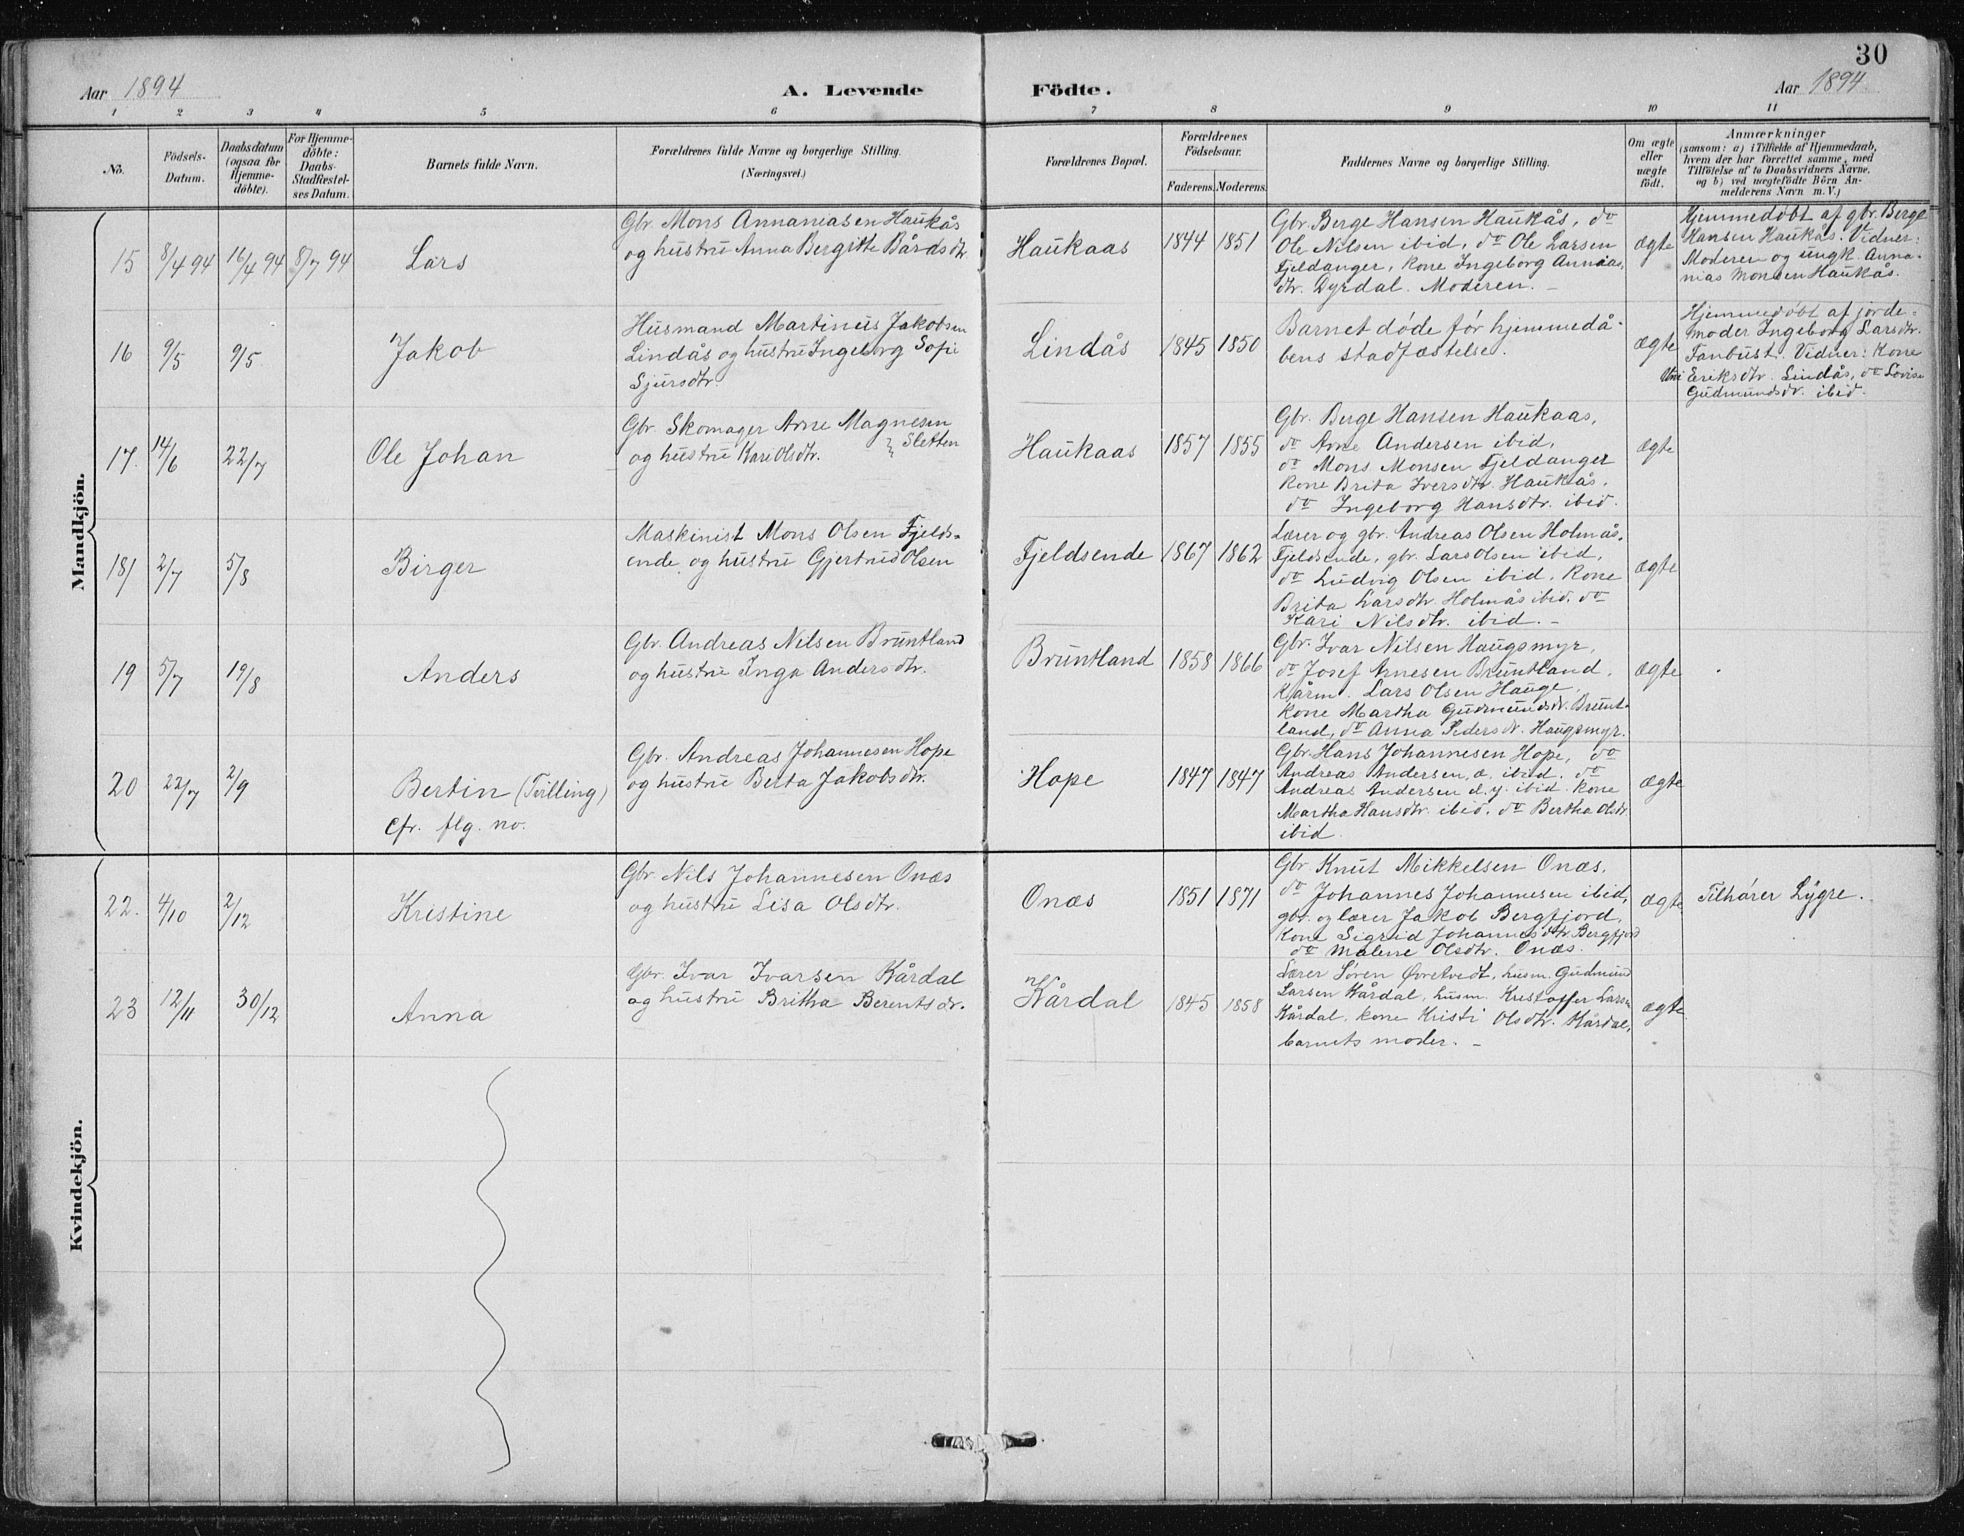 30
Aar 1894
A. Levende Födte.
Aar 1894
1 2 3 4 5 6 7 8 9 10 11
No.
Födsels-
Datum.
Daabsdatum
(ogsaa for
Hjemme-
döbte).
For Hjemme-
döbte:
Daabs-
Stadfæstel-
ses Datum.
Barnets fulde Navn.
Forældrenes fulde Navne og borgerlige Stilling.
(Næringsvei.)
Forældrenes Bopæl.
Forældrenes
Födselsaar.
Faderens. Moderens.
Faddernes Navne og borgerlige Stilling.
Om ægte
eller
uægte
födt.
Anmærkninger
(saasom: a) i Tilfælde af Hjemmedaab,
hvem der har forrettet samme, med
Tilföielse af to Daabsvidners Navne,
og b) ved uægtefödte Börn An-
melderens Navn m. V.)
Mandkjön.
15 8/4 94 16/4 94 8/7 94 Lars
Gbr. Mons Annaniasen Haukås
og hustru Anna Bergitte Bårdsdtr.
Haukaas 1844 1851
Gbr. Berge Hansen Haukås, do
Ole Nilsen ibid, do Ole Larsen
Fjeldanger, kone Ingeborg Annaia-
dtr. Dyrdal. Moderen. –
ægte
Hjemmedøbt af gbr. Berge
Hansen Haukås. Vidner:
Moderen og ungk. Anna-
nias Monsen Haukås.
16 9/5 9/5 Jakob
Husmand Martinus Jakobsen
Lindås og hustru Ingeborg Sofie
Sjursdtr.
Lindås 1845 1850
Barnet døde før hjemmedå-
bens stadfæstelse.
ægte
Hjemmedøbt af jorde-
moder Ingeborg Larsdtr.
Fanbust. Vidner: Kone
Unni Eriksdtr. Lindås, do Lovise
Gudmundsdr. ibid.
17. 14/6 22/7 Ole Johan
Gbr. Skomager Arne Magnesen
og hustru Kari Olsdtr. } Sletten
Haukaas 1857 1855
Gbr. Berge Hansen Haukaas,
do Arne Andersen ibid,
do Mons Monsen Fjeldanger
kone Brita Iversdtr. Haukås,
do Ingeborg Hansdtr. ibid.
ægte
18 2/7 5/8 Birger
Maskinist Mons Olsen Fjelds-
ende og hustru Gjertrud Olsen
Fjeldsende 1867 1862
Lærer og gbr. Andreas Olsen Holmås,
Fjeldsende, gbr. Lars Olsen ibid,
do Ludvig Olsen ibid. Kone
Brita Larsdtr. Holmås ibid. do
Kari Nilsdtr. ibid. –
ægte
19 5/7 19/8 Anders
Gbr. Andreas Nilsen Bruntland
og hustru Inga Andersdtr.
Bruntland 1858 1866
Gbr. Ivar Nilsen Haugsmyr,
do Josef Arnesen Bruntland,
Kårm. Lars Olsen Hauge,
kone Martha Gudmundsdr. Brunt-
land, do Anna Pedersdr. Haugsmyr.
ægte
20 22/7 2/9 Bertin (Tvilling)
cfr. flg. no.
Gbr. Andreas Johannesen Hope
og hustru Berta Jakobsdtr.
Hope 1847 1847
Gbr. Hans Johannesen Hope, do
Andreas Andersen, æ. ibid. do
Andreas Andersen d. y. ibid. kone
Martha Hansdtr. ibid. do Bertha Olsdr.
ibid.
ægte
Kvindekjön.
22. 4/10 2/12 Kristine
Gbr Nils Johannesen Onæs
og hustru Lisa Olsdtr.
Onæs 1851 1871
Gbr Knut Mikkelsen Onæs,
do Johannes Johannesen ibid,
gbr. og lærer Jakob Bergfjord,
kone Sigrid Johannesdtr. Bergfjord
do Malene Olsdtr. Onæs.
ægte
Tilhører Lygre.
23 12/11 30/12 Anna
Gbr. Ivar Ivarsen Kårdal
og hustru Britha Berentsdr.
Kårdal 1845 1858
Lærer Søren Øvretvedt, husm. Gudmund
Larsen Kårdal, husm. Kristoffer Larsen
Kårdal, kone Kristi Olsdtr. Kårdal,
barnets moder. –
ægte